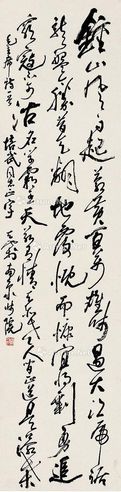 鍾山風雨起蒼黃百萬雄師過大江虎踞
龍盤今勝昔天翻地覆慨而慷宜將剩勇追
窮寇不可沽名學霸王天若有情天亦老人間正道是滄桑
毛主席詩一首 培武同志正字